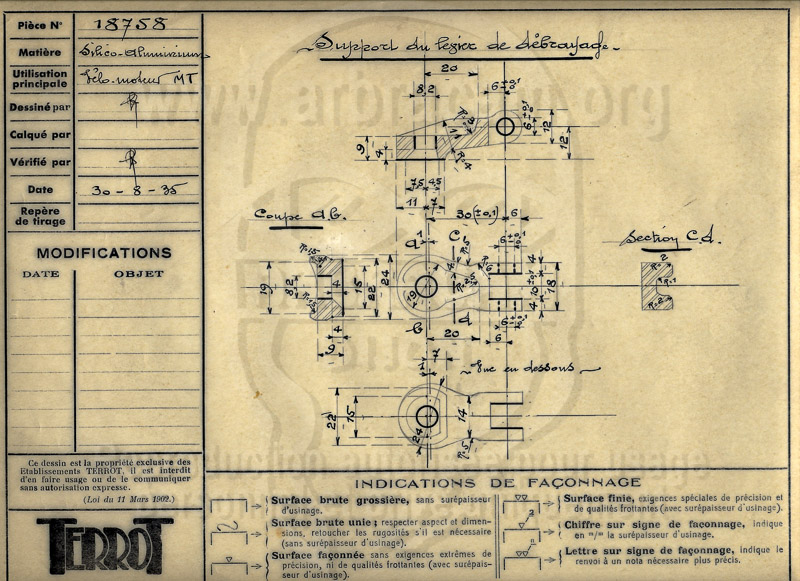 Pièce N° 18758
Matière Silico-Aluminium
Utilisation principale Vélo-moteur MT
Dessiné par
Calqué par
Vérifié par
Date 30-8-35
Repère de tirage
MODIFICATIONS
DATE OBJET
Ce dessin est la propriété exclusive des
Etablissements TERROT, il est interdit
d'en faire usage ou de le communiquer
sans autorisation expresse.
(Loi du 11 Mars 1902.)
TERROT
Support du levier de débrayage.
20
8,2
6 ±0,1
R=3
11
6 ±0,1
12
12
9
4
R=4
7,5 4,5
11 7
30(±0,1) 6
Coupe a.b.
R=1,5
19
8,2
4
15
22
24
R=1,5
4
9
a
1
C
19
b
d
20
6 ±0,1
4
10 ±0,1
4
18
6 ±0,1
6
Section C.d.
R=2
R=1
R=2
7
1
Vue en dessous
22
15
24
14
R=5
INDICATIONS DE FAÇONNAGE
Surface brute grossière, sans surépaisseur
d'usinage.
Surface brute unie; respecter aspect et dimen-
sions, retoucher les rugosités s'il est nécessaire
(sans surépaisseur d'usinage).
Surface façonnée sans exigences extrêmes de
précision, ni de qualités frottantes (avec surépais-
seur d'usinage).
Surface finie, exigences spéciales de précision et
de qualités frottantes (avec surépaisseur d'usinage).
3
Chiffre sur signe de façonnage, indique
en m/m la surépaisseur d'usinage).
n
Lettre sur signe de façonnage, indique le
renvoi à un nota nécessaire plus précis.